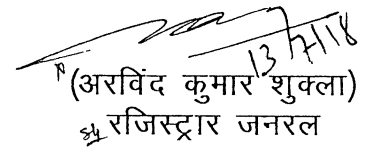 13/7/18
(अरविंद कुमार शुक्ला)
रजिस्ट्रार जनरल